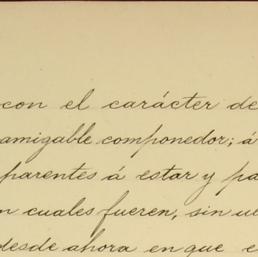 con el carácter de
amigable componedor; á
parentes á estar y pa
n cuales fueren, sin
desde ahora en que e